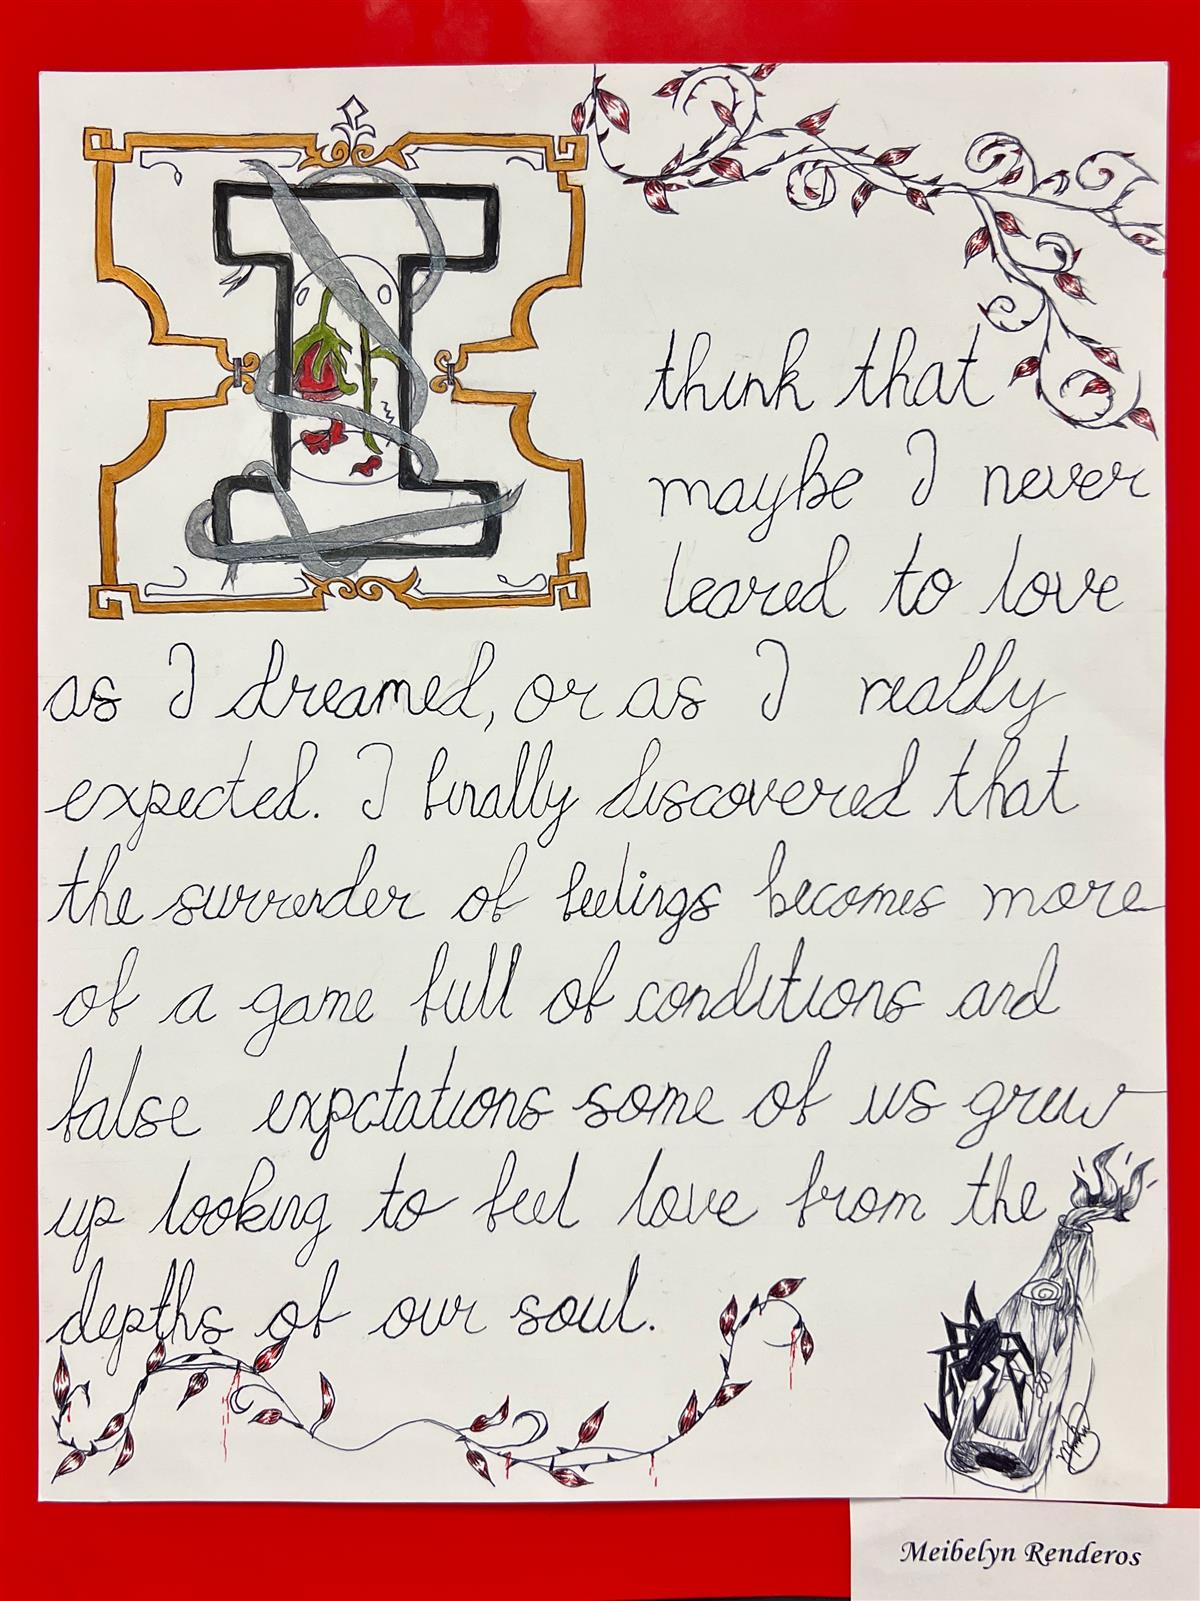 I
think that
maybe I never
leared to love
as I dreamed, or as I really
expected. I finally discovered that
the surrender of feelings becomes more
of a game full of conditions and
false expctations some of us grew
up looking to feel love from the
depths of our soul.
Meibelyn Renderos